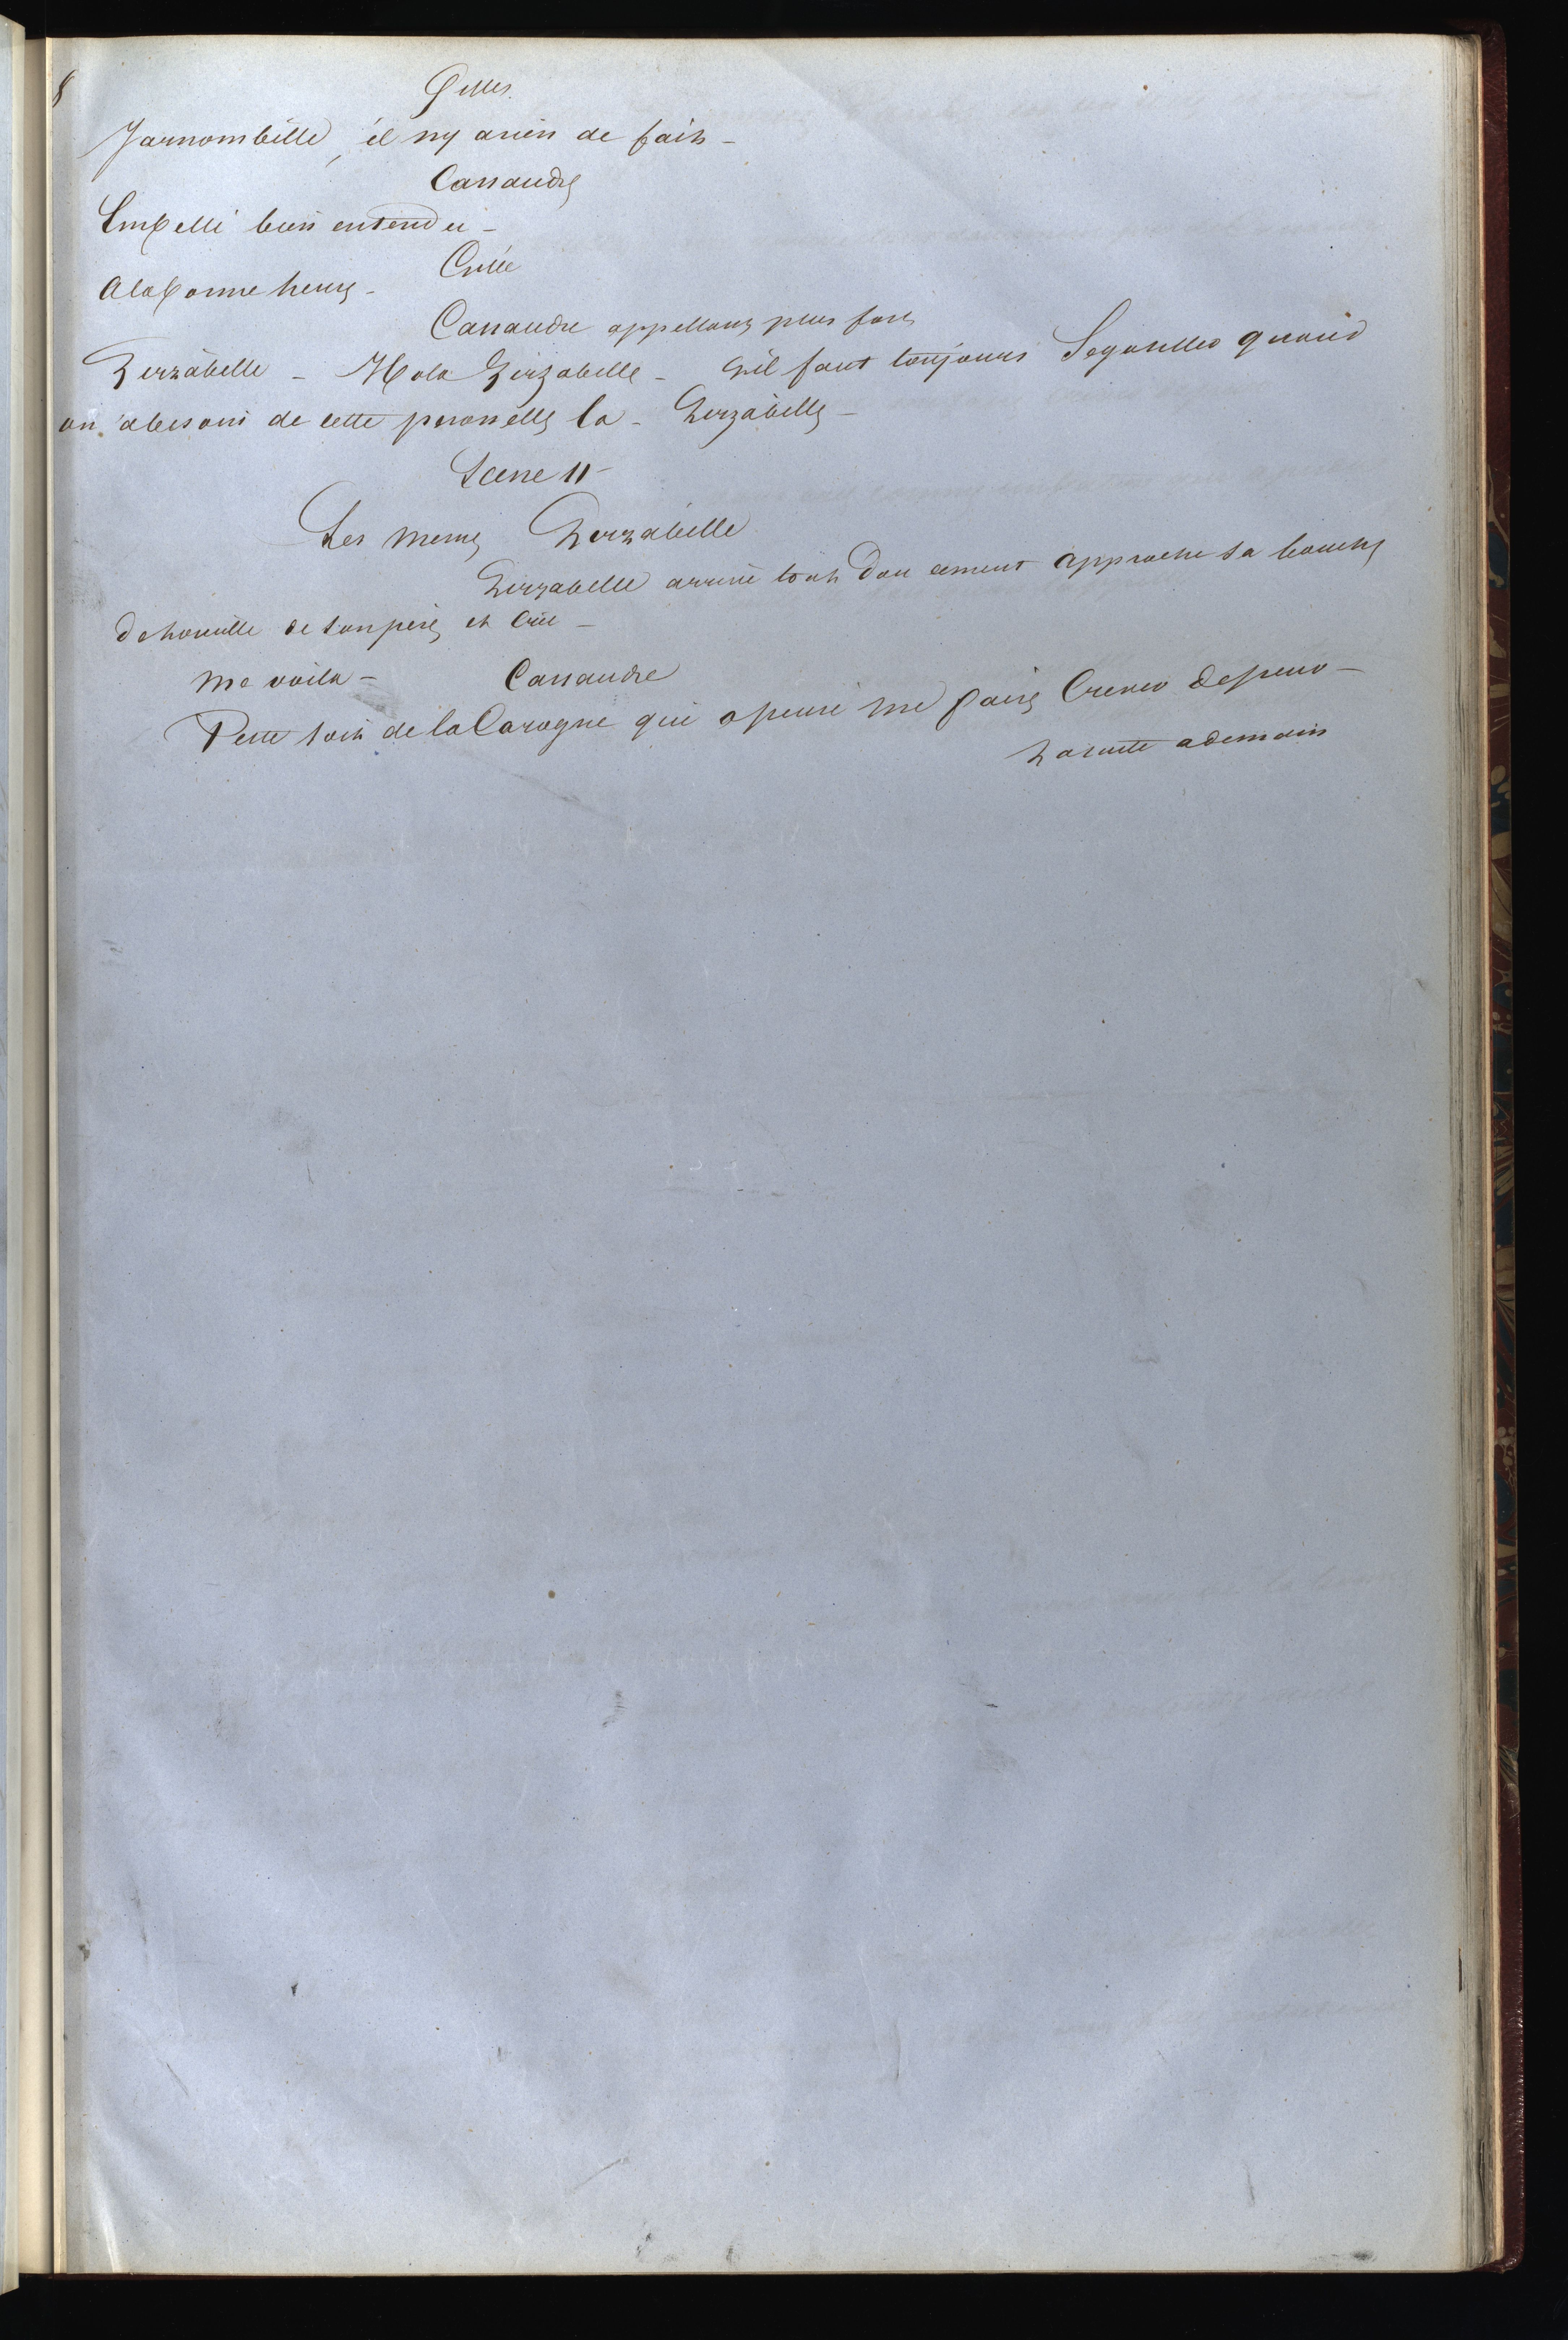 8
Gilles
Jarnombille, il ny arien de fait -
Cassandre
Imbelli bien entendu -
Crie
Alabonne heure -
Cassandre appellant plus fort
Zirzabelle - Hola Zirzabelle - quil faut toujours Segosiller quand
on abesoin de cette peronelle la - Zirzabelle -
Scene 11 -
Les memes Zirzabelle
Zirzabelle arrive tout doucement approche sa bouche
de loreille de son pere et Crie -
me voila -
Cassandre
Peste soit de la Carogne qui a pensé me faire Crever depeur -
La suite a demain